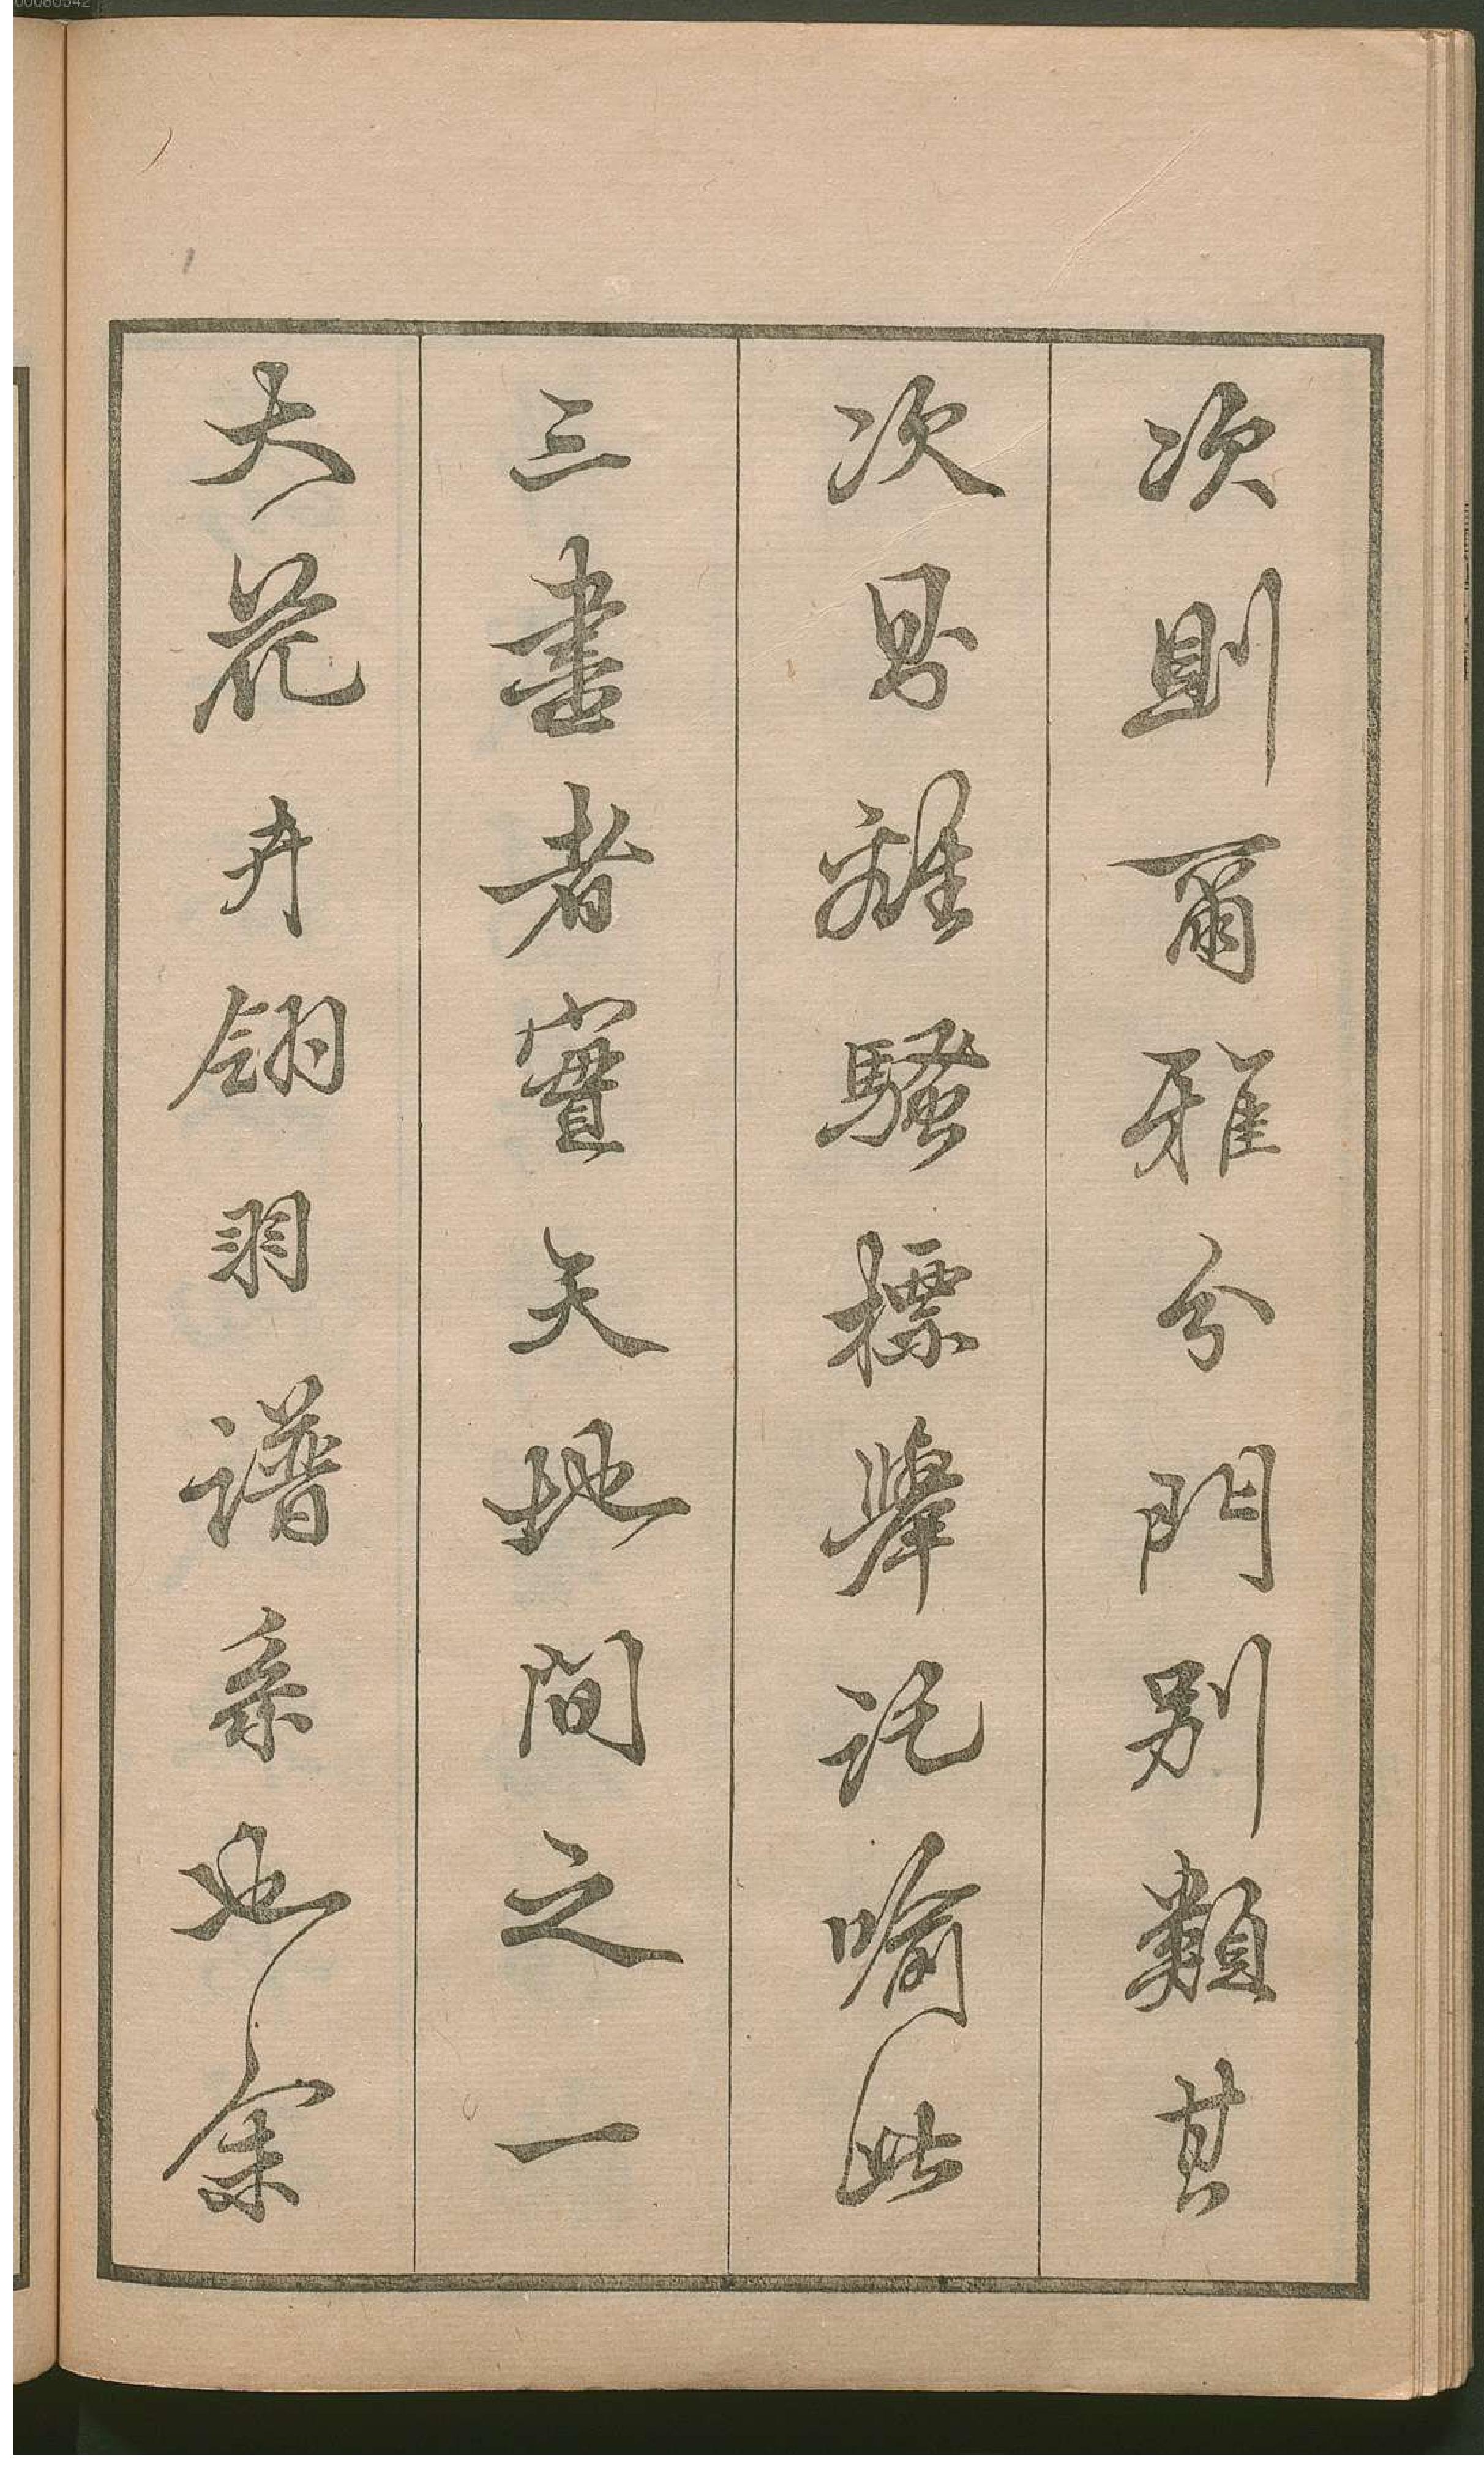 次則爾雅分門別類其
次易離騷標舉託喻此
三書者實天地間之一
大花卉翎羽譜系也余